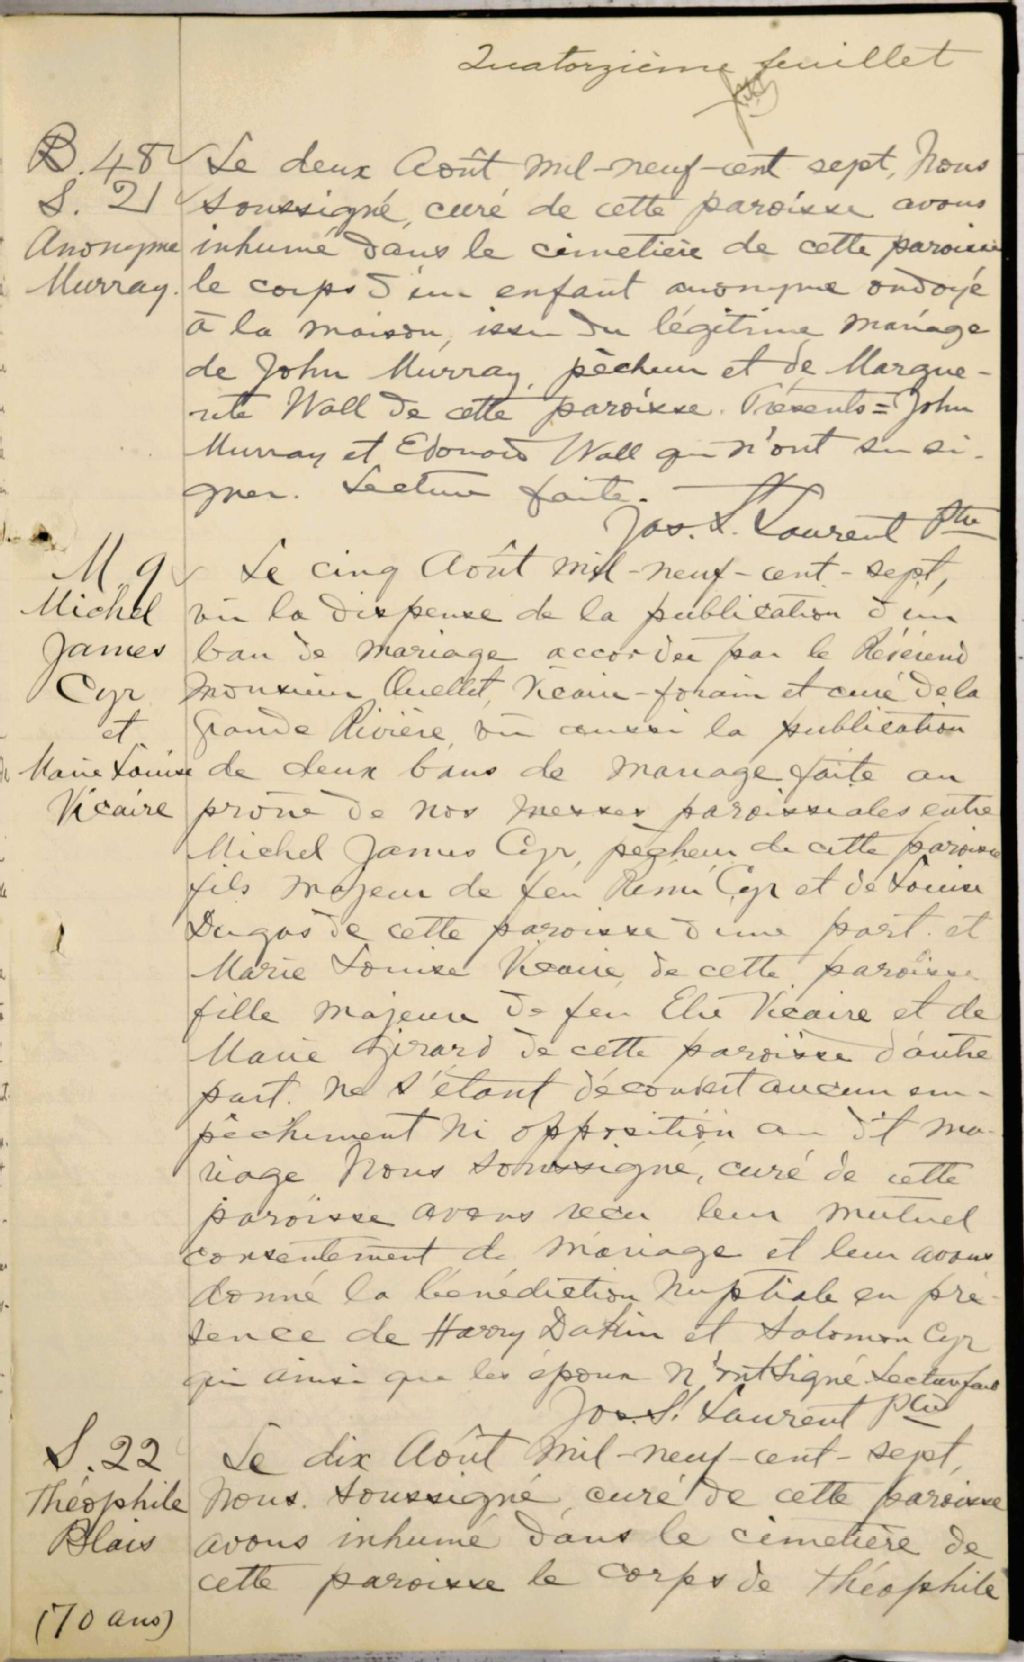 Quatorzième feuillet
B. 48
S. 21
Anonyme
Murray.
Le deux Août mil-neuf-cent sept, Nous
soussigné, curé de cette paroisse avons
inhumé dans le cimetière de cette paroisse
le corps d'un enfant anonyme ondoyé
à la maison, issu du légitime mariage
de John Murray, pêcheur et de Margue-
rite Wall de cette paroisse. Présents = John
Murray et Edouard Wall qui n'ont su si-
gner. Lecture faite.
Jos. St Laurent Ptre
M. 9
Michel
James
Cyr
et
Marie Louise
Vicaire
Le cinq Août mil-neuf-cent-sept,
vu la dispense de la publication d'un
ban de mariage accordée par le Révérend
Monsieur Ouellet, Vicaire-forain et curé de la
Grande Rivière, vu aussi la publication
de deux bans de mariage faite au
prône de nos messes paroissiales entre
Michel James Cyr, pêcheur de cette paroisse
fils majeur de feu Rémi Cyr et de Louise
Dugas de cette paroisse d'une part. et
Marie Louise Vicaire, de cette paroisse
fille majeure de feu Elie Vicaire et de
Marie Girard de cette paroisse d'autre
part. ne s'étant découvert aucun em-
pêchement ni opposition au dit ma-
riage Nous soussigné, curé de cette
paroisse avons reçu leur mutuel
consentement de mariage et leur avons
donné la bénédiction Nuptiale en pré-
sence de Harry Dakin et Salomon Cyr
qui ainsi que les époux n'ont signé. Lecture faite
Jos. St Laurent Ptre
S. 22
Théophile
Blais
(70 ans)
Le dix Août mil-neuf-cent-sept,
Nous. soussigné, curé de cette paroisse
avons inhumé dans le cimetière de
cette paroisse le corps de Théophile